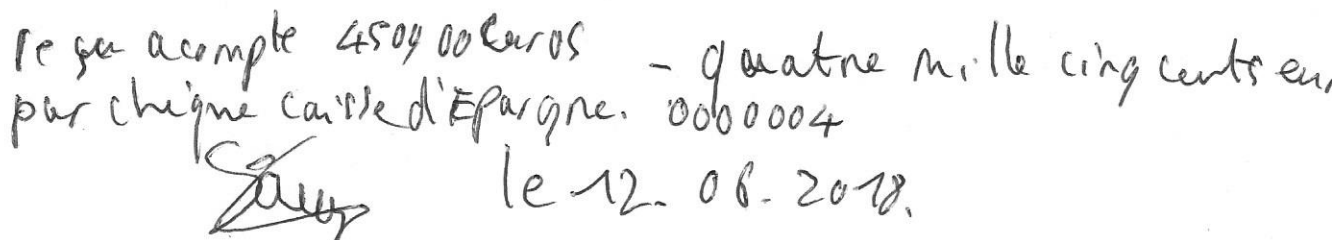 reçu acompte 4500,00 Euros - quatre mille cinq cents eu
par chèque caisse d'Epargne. 0000004
le 12.06.2018.